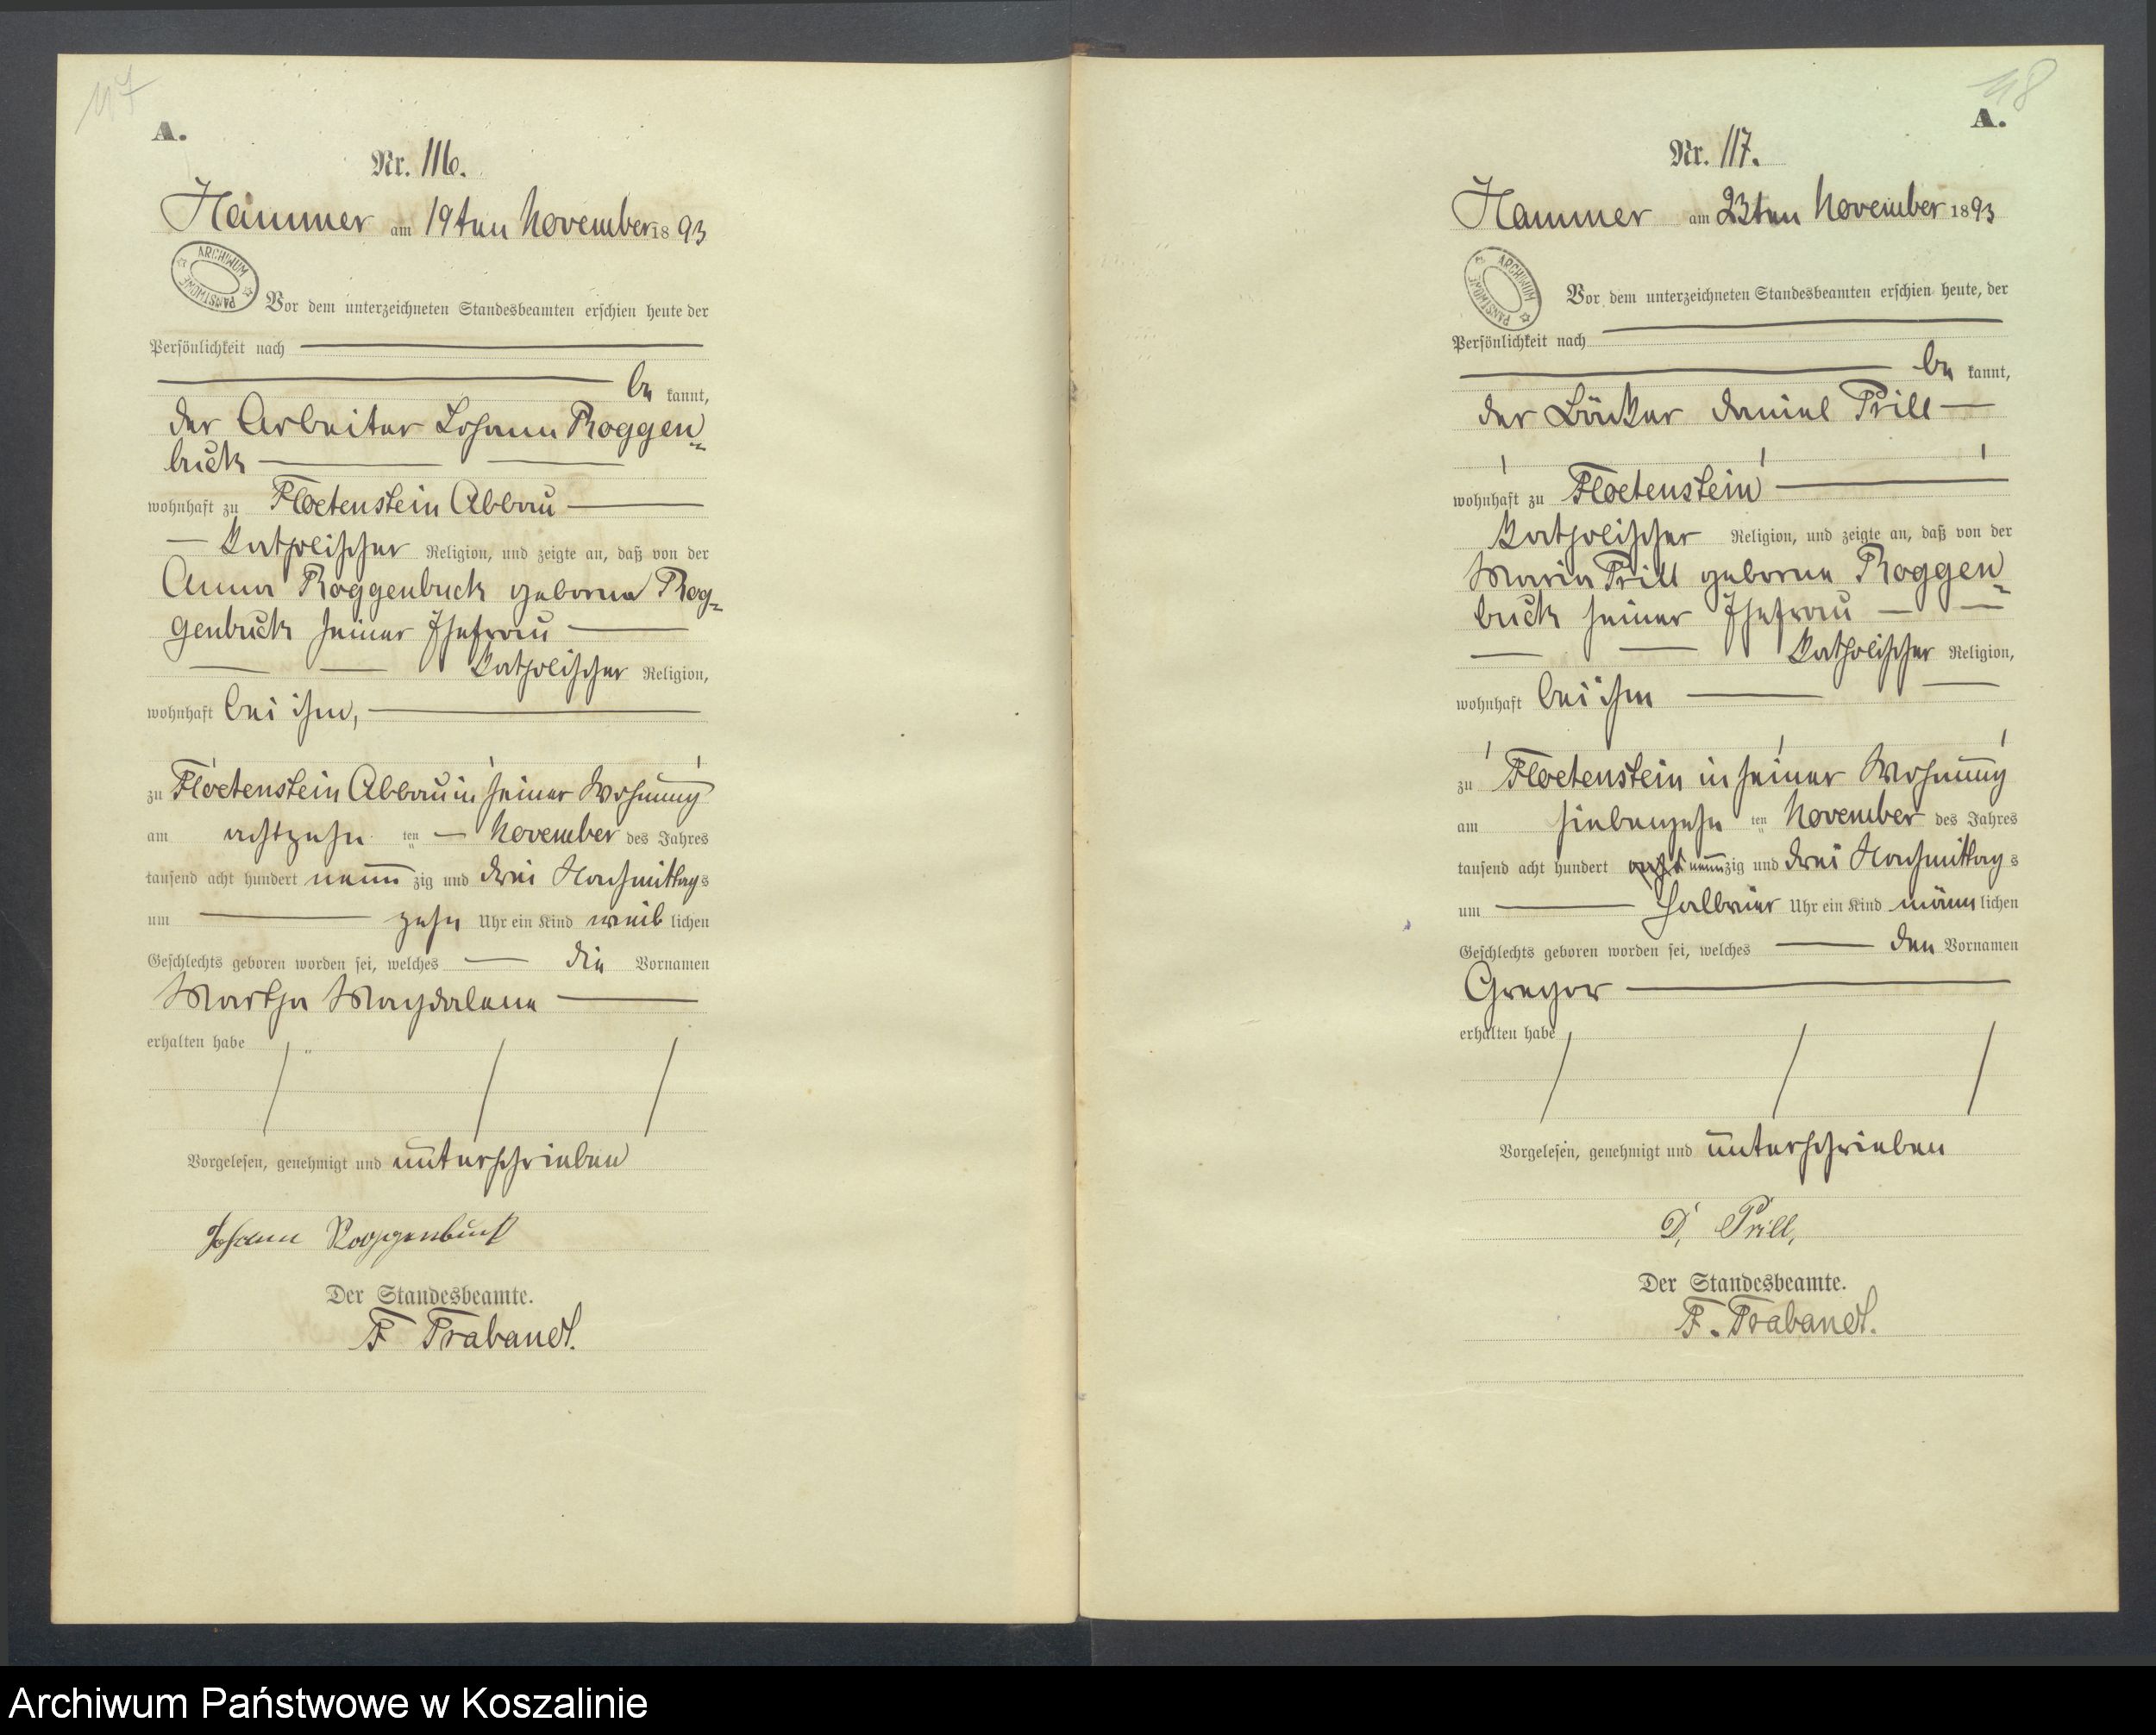 117
A.
Nr. 116.
Hammer am 19ten November 1893
ARCHIWUM PAŃSTWOWE
Vor dem unterzeichneten Standesbeamten erschien heute der
Persönlichkeit nach
be kannt,
der Arbeiter Johann Roggen=
buck
wohnhaft zu Floetenstein Abbau
katholischer Religion, und zeigte an, daß von der
Anna Roggenbuck geborne Rog=
genbuck seiner Ehefrau
katholischer Religion,
wohnhaft bei ihm,
zu Floetenstein Abbau in seiner Wohnung
am achtzehn ten November des Jahres
tausend acht hundert neun zig und drei Nachmittags
um zehn Uhr ein Kind weib lichen
Geschlechts geboren worden sei, welches die Vornamen
Martha Magdalena
erhalten habe
Vorgelesen, genehmigt und unterschrieben
Johann Roggenbuck
Der Standesbeamte.
F Trabandt.
118
A.
Nr. 117.
Hammer am 23ten November 1893
ARCHIWUM PAŃSTWOWE
Vor dem unterzeichneten Standesbeamten erschien heute, der
Persönlichkeit nach
be kannt,
der Bäcker Daniel Prill
wohnhaft zu Floetenstein
katholischer Religion, und zeigte an, daß von der
Maria Prill geborne Roggen=
buck seiner Ehefrau
katholischer Religion,
wohnhaft bei ihm
zu Floetenstein in seiner Wohnung
am siebenzehn ten November des Jahres
tausend acht hundert neunzig und drei Nachmittags
um halbvier Uhr ein Kind männ lichen
Geschlechts geboren worden sei, welches den Vornamen
Gregor
erhalten habe
Vorgelesen, genehmigt und unterschrieben
D. Prill,
Der Standesbeamte.
F. Trabandt.
Archiwum Państwowe w Koszalinie